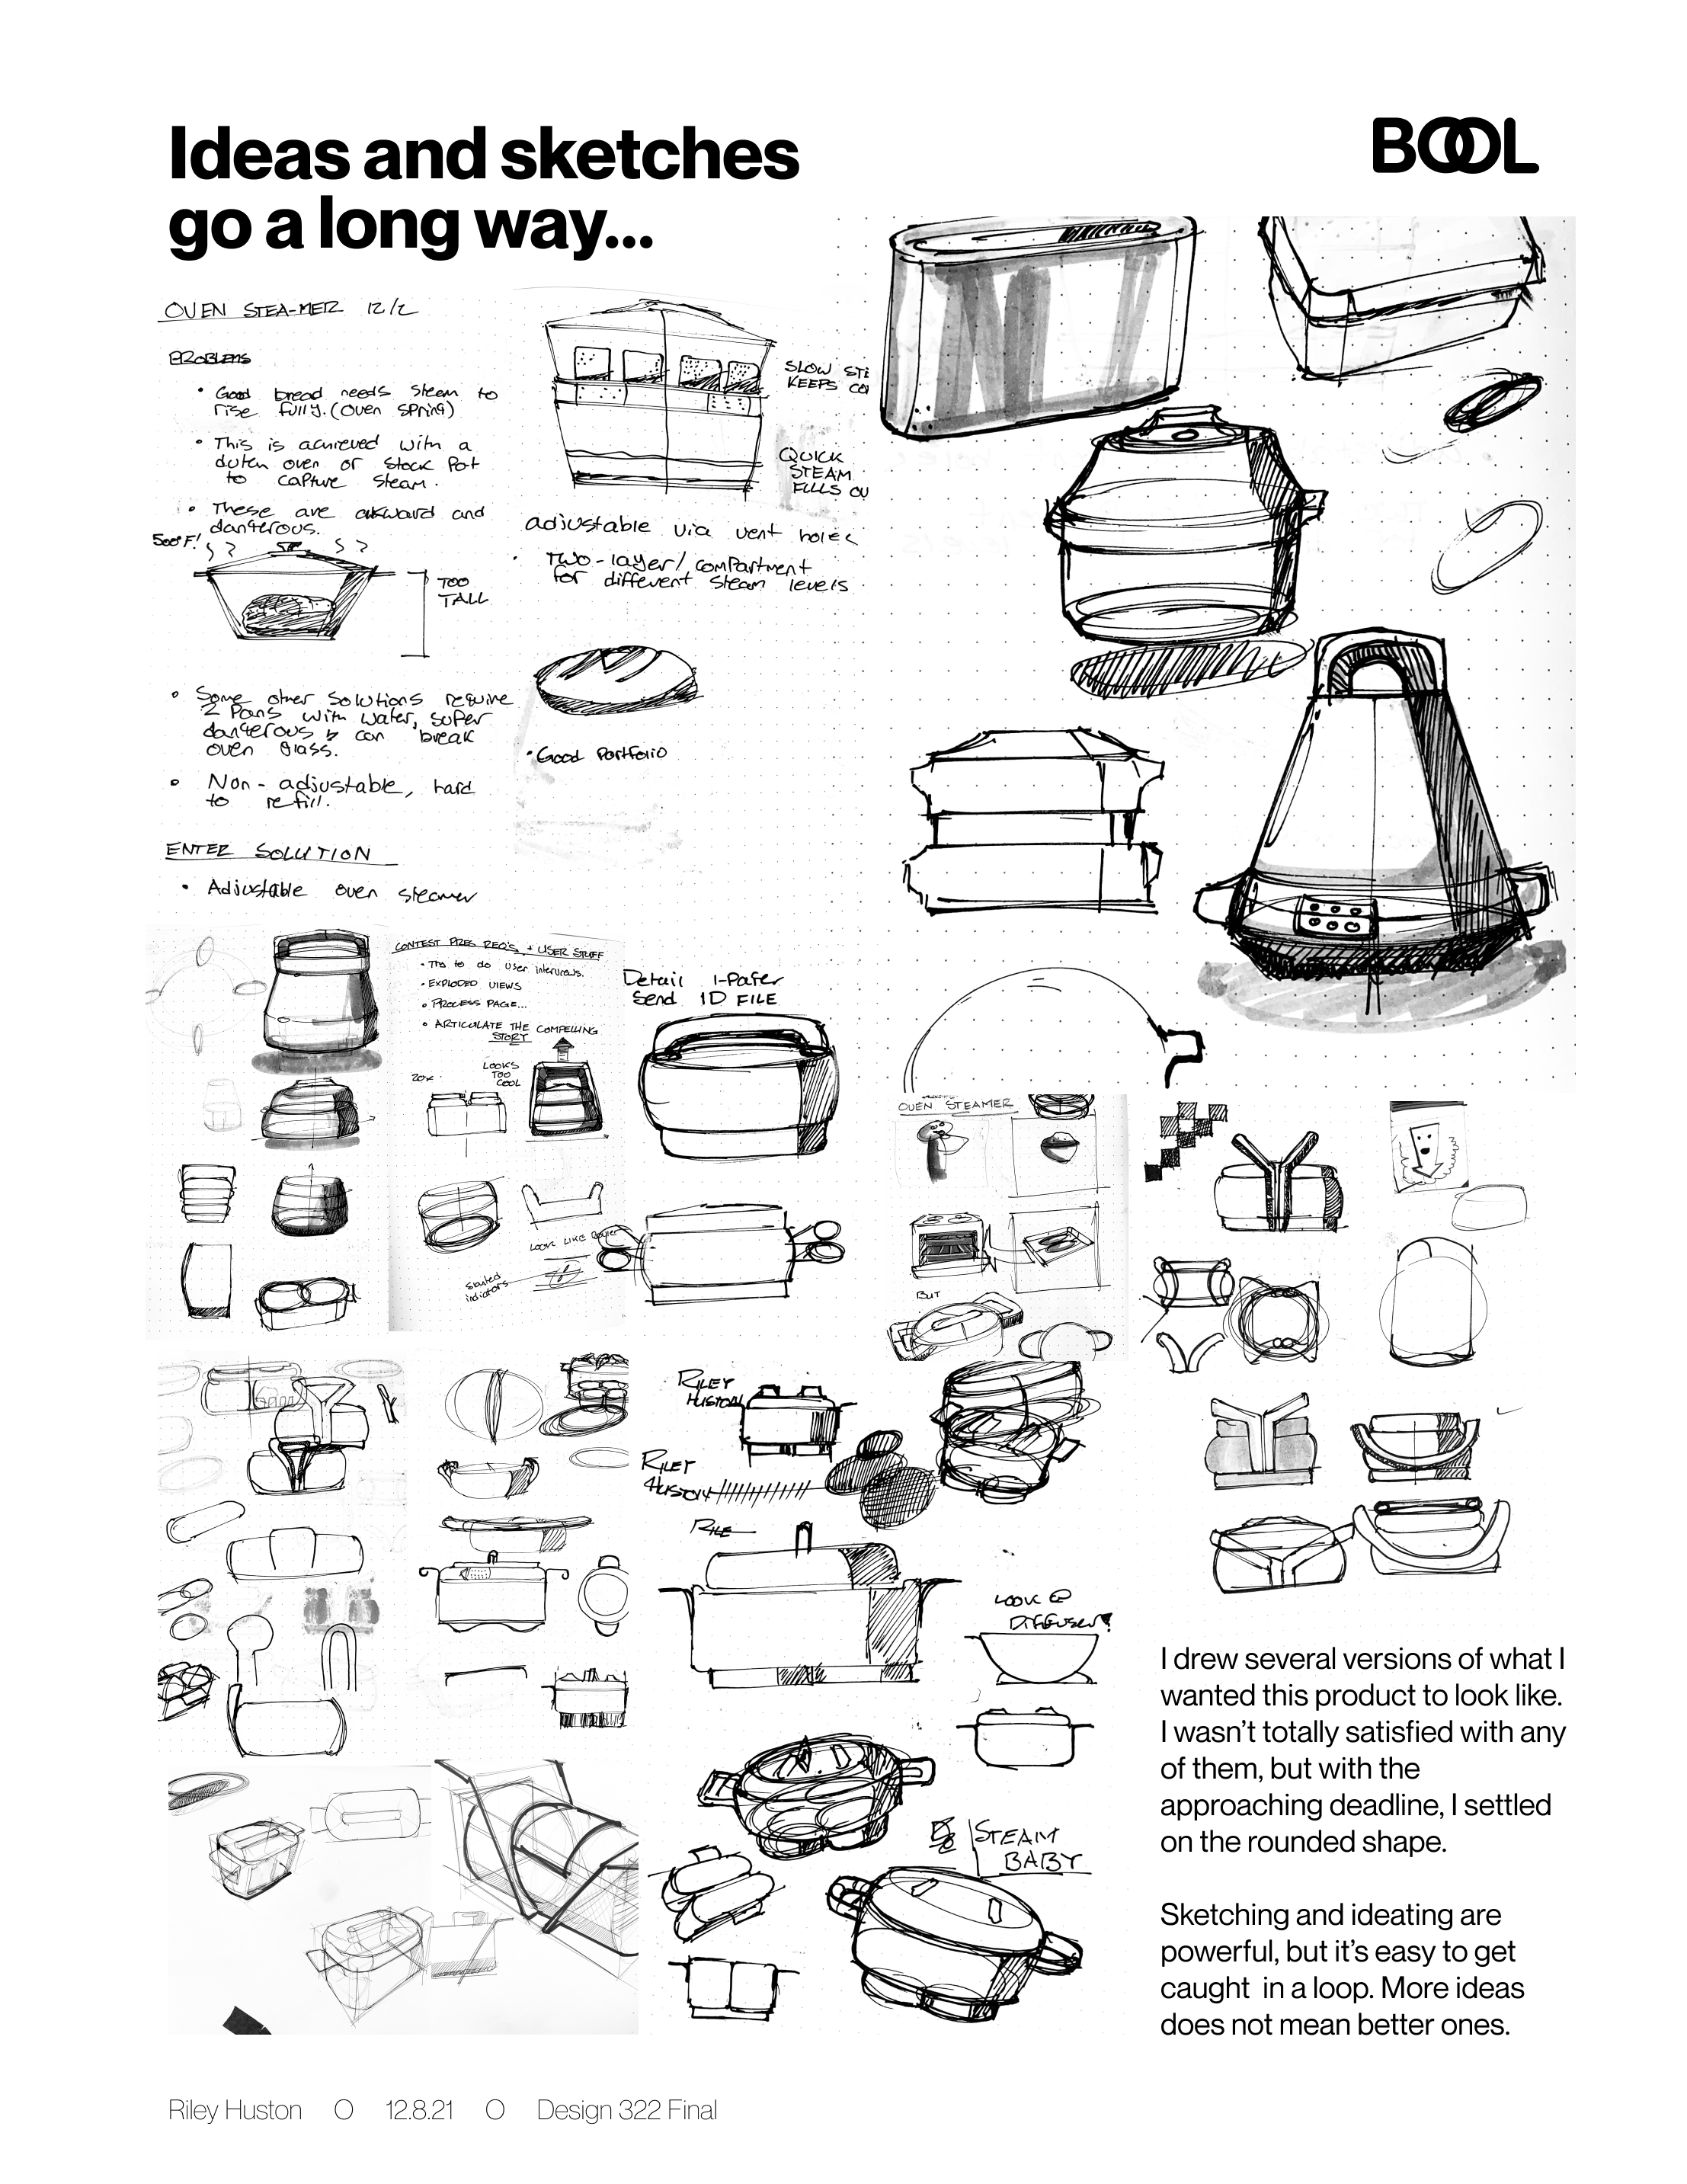 Ideas and sketches
go a long way...
BOOL
OVEN STEA-MER 12/2
PROBLEMS
• Good bread needs steam to
rise fully. (oven spring)
• This is achieved with a
dutch oven or stock pot
to capture steam.
• These are awkward and
dangerous.
500°F!
TOO
TALL
• Some other solutions require
2 pans with water, super
dangerous & can break
oven glass.
• Non-adjustable, hard
to refill.
ENTER SOLUTION
• Adjustable oven steamer
SLOW STE
KEEPS CO
QUICK
STEAM
FILLS OU
adjustable via vent holes
• Two-layer/compartment
for different steam levels
• Good Portfolio
CONTEST PRES REQ'S, + USER STUFF
• Try to do user interviews.
• EXPLODED VIEWS
• PROCESS PAGE...
• ARTICULATE THE COMPELLING
STORY
LOOKS
TOO
COOL
LOOK LIKE
slanted
indicators
Detail 1-Pager
Send ID FILE
OVEN STEAMER
BUT
RILEY
HUSTON
RILEY
HUSTON
RILE
LOOK @
DIFFUSER!
STEAM
BABY
I drew several versions of what I
wanted this product to look like.
I wasn't totally satisfied with any
of them, but with the
approaching deadline, I settled
on the rounded shape.
Sketching and ideating are
powerful, but it's easy to get
caught in a loop. More ideas
does not mean better ones.
Riley Huston O 12.8.21 O Design 322 Final